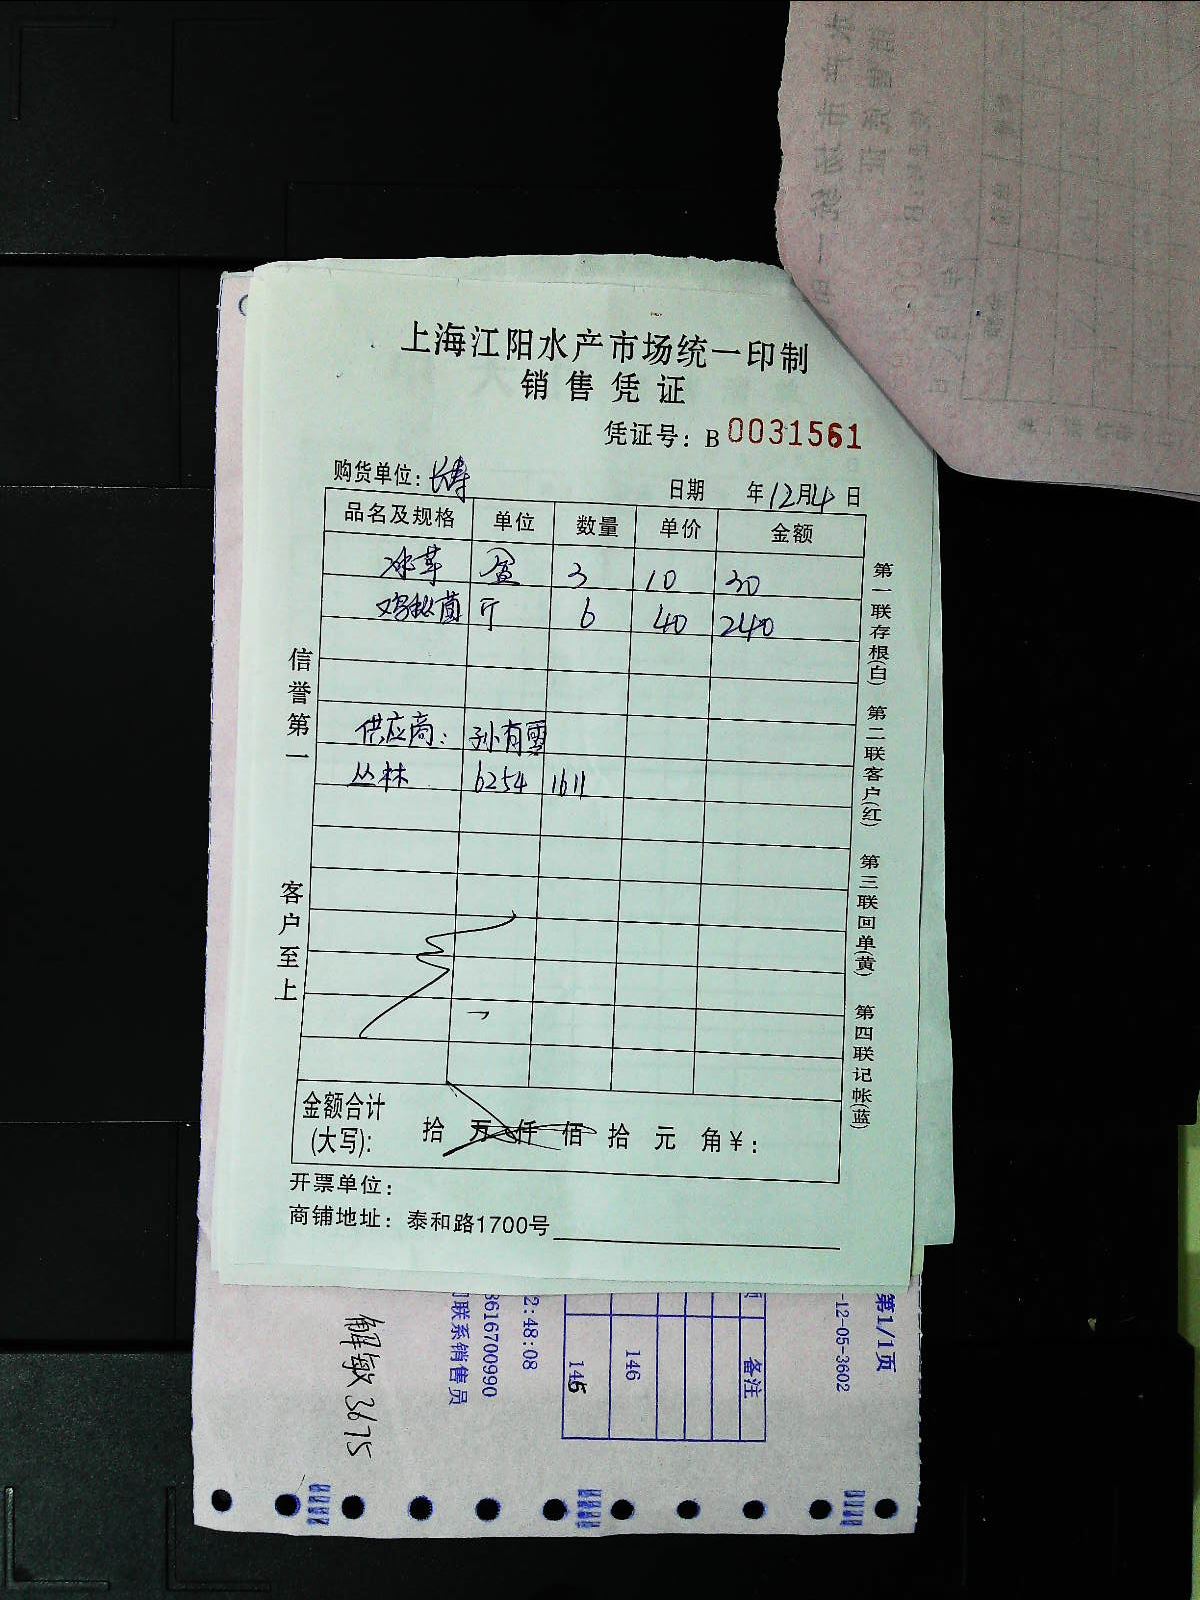 上海江阳水产市场统一印制
销售凭证
凭证号：B 0031561
购货单位：长寿
日期 年12月4日
品名及规格 单位 数量 单价 金额
冰草 盒 3 10 30
鸡枞菌 斤 6 40 240
供应商：孙有雪
丛林 6254 1611
金额合计
(大写)： 拾 万 仟 佰 拾 元 角 ￥：
开票单位：
商铺地址：泰和路1700号
信誉第一
客户至上
第一联存根(白) 第二联客户(红) 第三联回单(黄) 第四联记帐(蓝)
第1/1页
-12-05-3602
备注
146
145
2:48:08
3616700990
联系销售员
解敏 3675